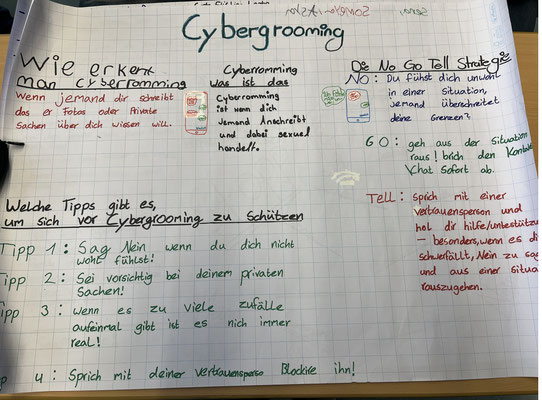 Cybergrooming
Wie erkent
man Cyberromming
Wenn jemand dir schreibt
das er Fotos oder Private
Sachen über dich wissen will.
Cyberromming
Was ist das
Cyberromming
ist wenn dich
Jemand Anschreibt
und dabei sexuel
handelt.
Die No Go Tell Strategie
NO: Du fühst dich unwohl
in einer Situation,
jemand überschreitet
deine Grenzen?
GO: geh aus der Situation
raus! brich den Kontakt
Chat Sofort ab.
Tell: Sprich mit einer
vertrauensperson und
hol dir hilfe/unterstütz
- besonders, wenn es di
schwerfällt, Nein zu sag
und aus einer Situa
rauszugehen.
Welche Tipps gibt es,
um sich vor Cybergrooming zu Schützen
Tipp 1: Sag Nein wenn du dich nicht
wohl fühlst!
Tipp 2: Sei vorsichtig bei deinem privaten
Sachen!
Tipp 3: wenn es zu viele zufälle
aufeinmal gibt ist es nich immer
real!
p 4: Sprich mit deiner vertrauensperso Blockire ihn!